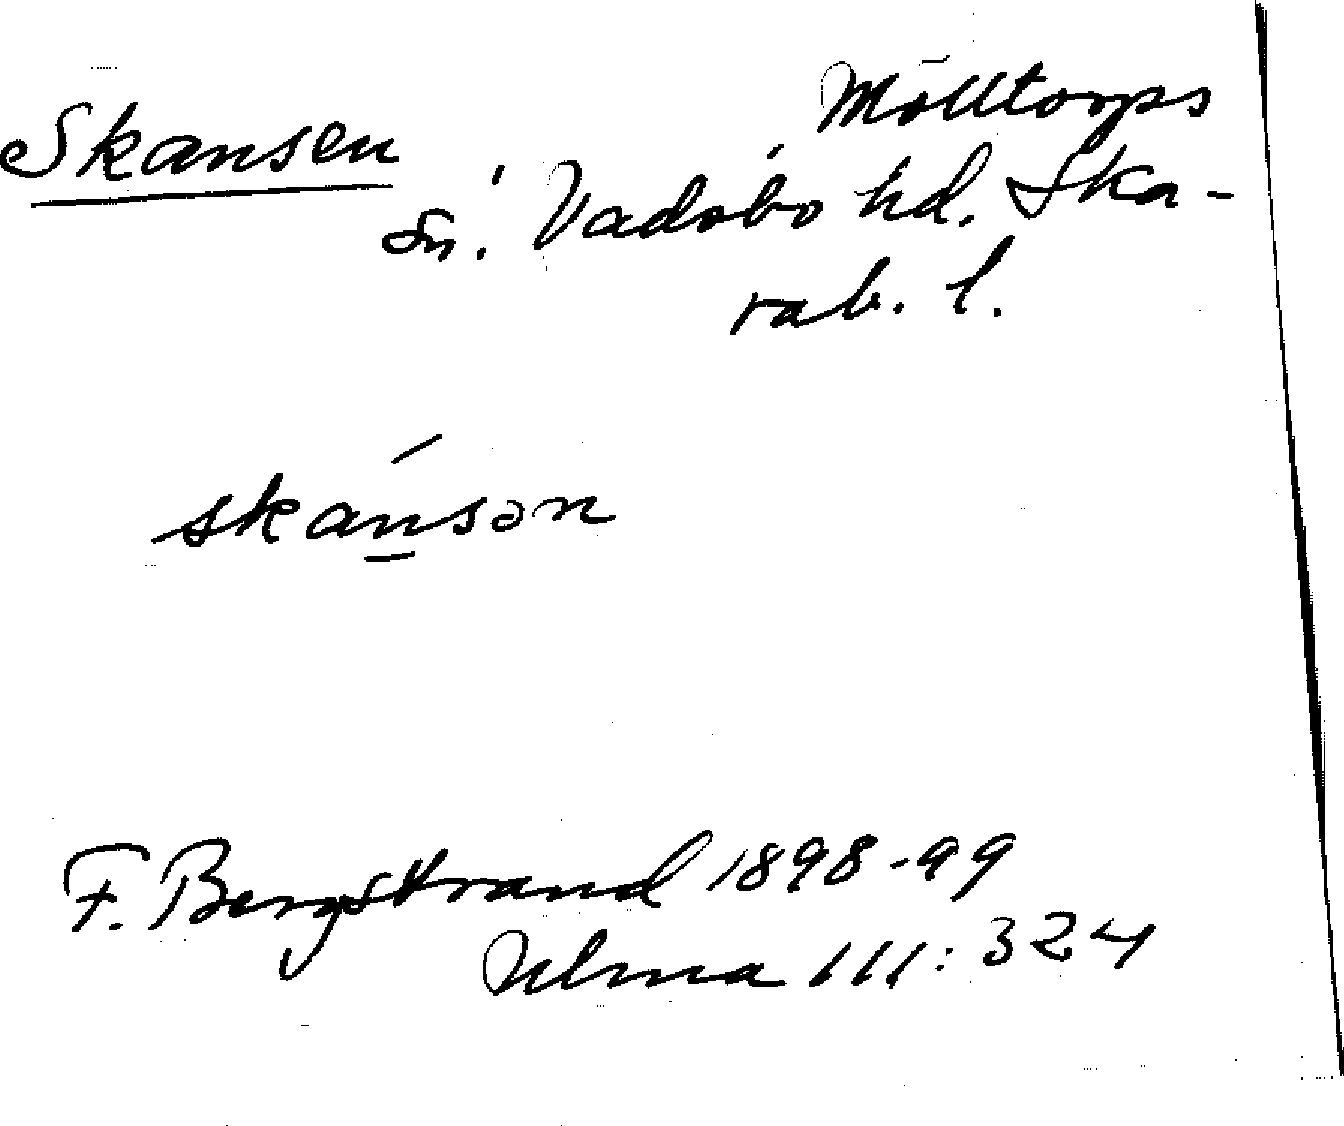 Skansen
Mölltorps
sn. Vadsbo hd. Ska-
rab. l.
skánsən
F. Bergstrand 1898-99
Ulma 111:324